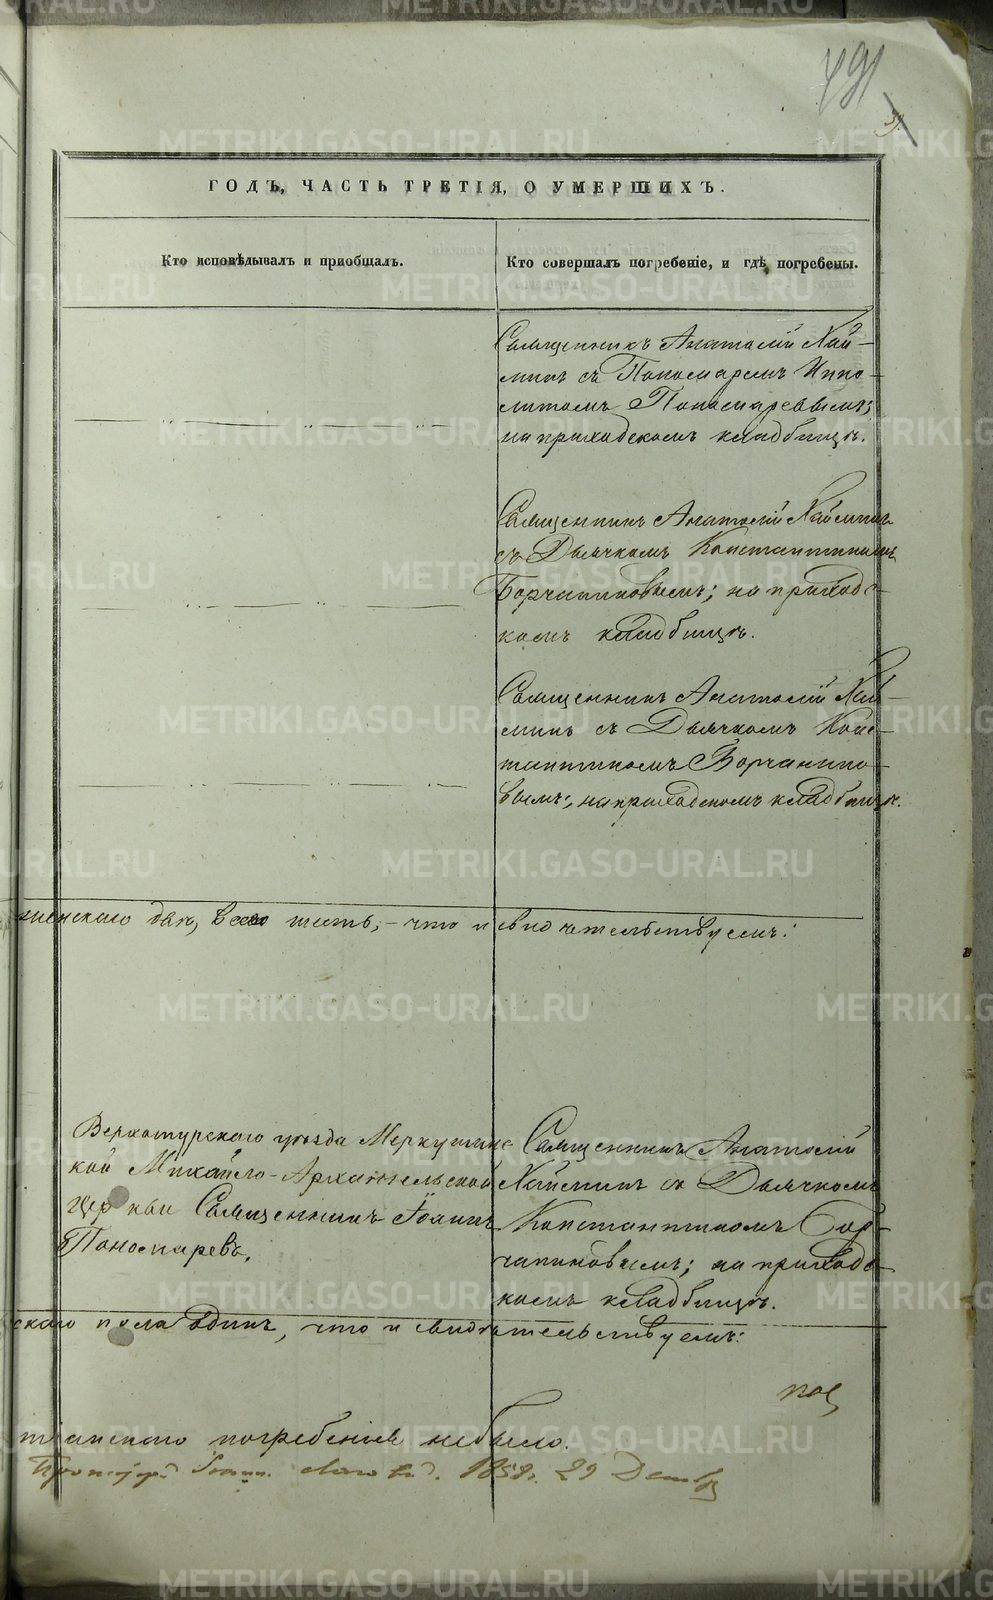 491
ГОДЪ, ЧАСТЬ ТРЕТІЯ, О УМЕРШИХЪ.
Кто исповѣдывалъ и пріобщалъ.
Кто совершалъ погребеніе, и гдѣ погребены.
Священникъ Анатолій Хай-
минъ съ Пономаремъ Иппо-
литомъ Пономаревымъ;
на приходскомъ кладбищѣ.
Священникъ Анатолій Хайминъ
съ Дьячкомъ Константиномъ
Борчаниновымъ; на приход-
скомъ кладбищѣ.
Священникъ Анатолій Хай-
минъ съ Дьячкомъ Конс-
тантиномъ Борчанино-
вымъ; на приходскомъ кладбищѣ.
женскаго два, всего шесть, - что и свидѣтельствуемъ:
Верхотурскаго уѣзда Меркушинс
кой Михайло-Архангельской
церкви Священникъ Іоаннъ
Пономаревъ.
Священникъ Анатолій
Хайминъ съ Дьячкомъ
Константиномъ Бор-
чаниновымъ; на приход-
скомъ кладбищѣ.
скаго пола одинъ, что и свидѣтельствуемъ:
тіанскаго погребенія небыло.
1859. 29 Декабр
METRIKI.GASO-URAL.RU